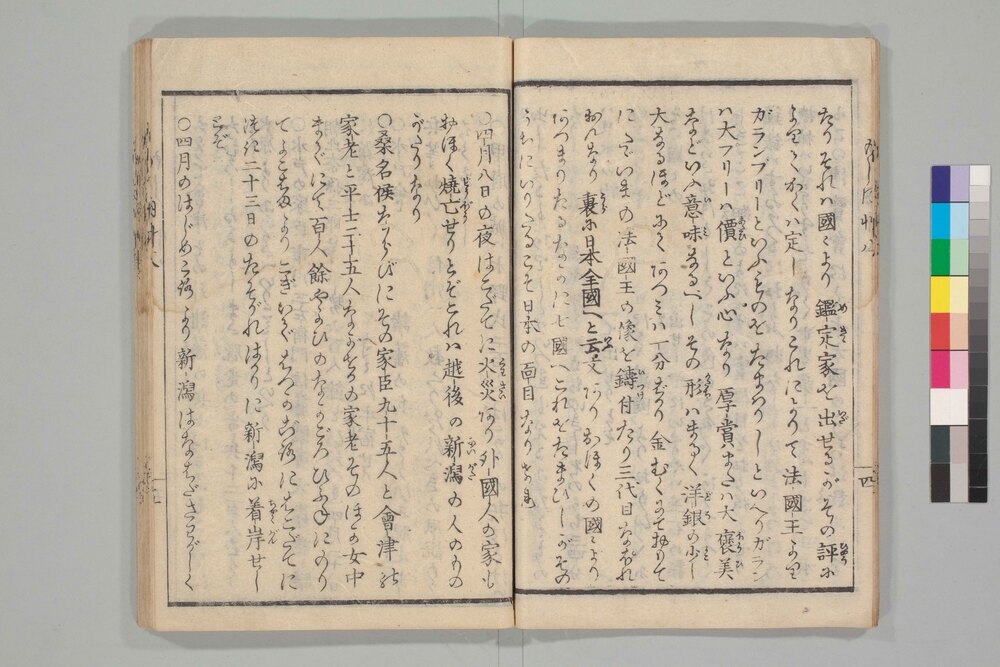 たりそれハ國々より鑑定家を出せるがその評に
よりてわくハ定しなりこれによりて法國王より
ガランプリーといふものをたまわりしといへりガラン
ハ大フリーハ價といふ心なり厚賞または大褒美
などいふ意味なるべしその形ハまるく洋銀の少し
大なるほどにてあつミハ一分ばかり金むくにて
にたゞいまの法國王の像を鑄付たり三代目なぽれ
おんなり裏に日本全國へと云文ありおほくの國々より
あつまりたるなかに七國へこれをたまひしがその
うちにいりたるこそ日本の面目なり
〇四月八日の夜はこだてに火災あり外國人の家も
おほく燒亡せりとぞこれハ越後の新潟の人のもの
がたりなり
〇桑名侯ならびにその家臣九十五人と會津の
家老と平士二十五人なかをかの家老そのほか女中
まじりにて百人餘やよひのなかごろひふねにのり
てよこはまよりこぎいではつか
流に二十三日のたそがれはかりに新潟に着岸せし
とぞ
〇四月のはじめころより新潟はなはださわがしく